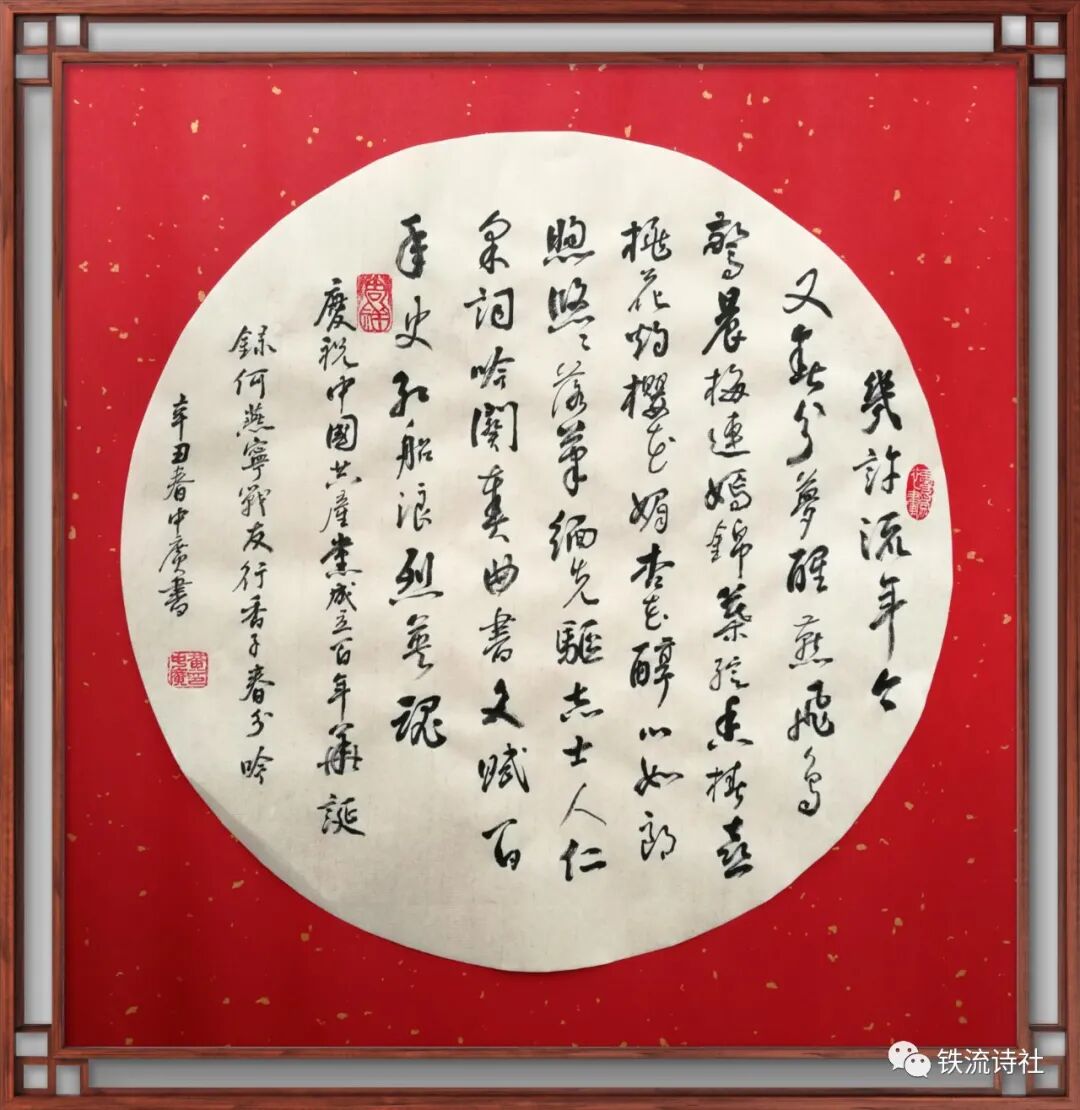 幾許流年今
又春分夢醒燕飛鳥
驚晨梅連嫣錦葉綻香椿喜
桃花灼櫻花媚杏花醇心如朗
照悠〻落筆緬先驅志士人仁
采詞吟闋奏曲書文賦百
年史紅船浪烈英魂
慶祝中國共產黨成立百年華誕
錄何燕寧戰友行香子春分吟
辛丑春中廣書
铁流诗社